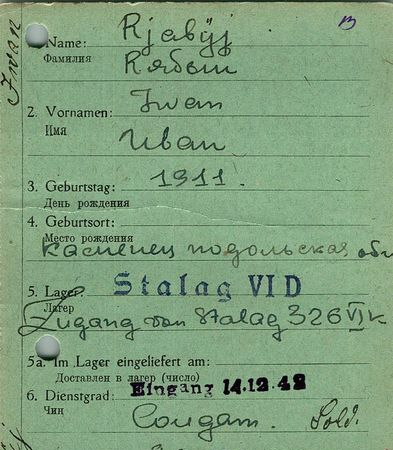 Jwan
1. Name: Rjabyj
Фамилия Рябый
2. Vornamen: Jwan
Имя Иван
3. Geburtstag: 1911.
День рождения
4. Geburtsort:
Место рождения
каменец подольская обл
5. Lager: Stalag VI D
Лагерь
Zugang von Stalag 326 VI K
5a. Im Lager eingeliefert am:
Доставлен в лагерь (число) Eingang 14.12.42
6. Dienstgrad: Sold.
Чин Солдат.